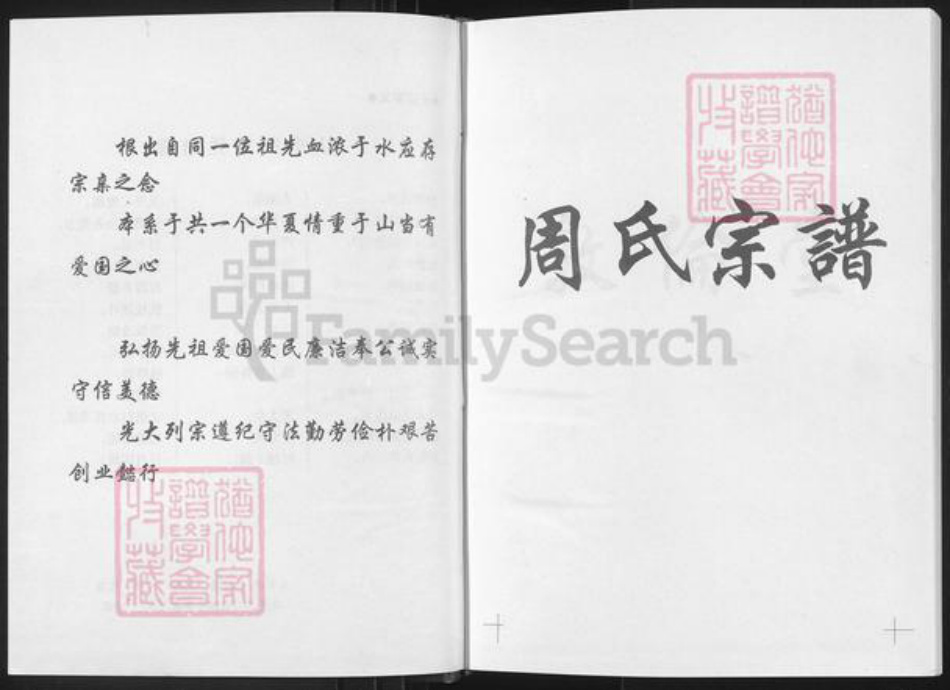 根出自同一位祖先血浓于水应存
宗亲之念
本系于共一个华夏情重于山当有
爱国之心
弘扬先祖爱国爱民廉洁奉公诚实
守信美德
光大列宗遵纪守法勤劳俭朴艰苦
创业懿行
周氏宗譜
FamilySearch
譜學會
收藏